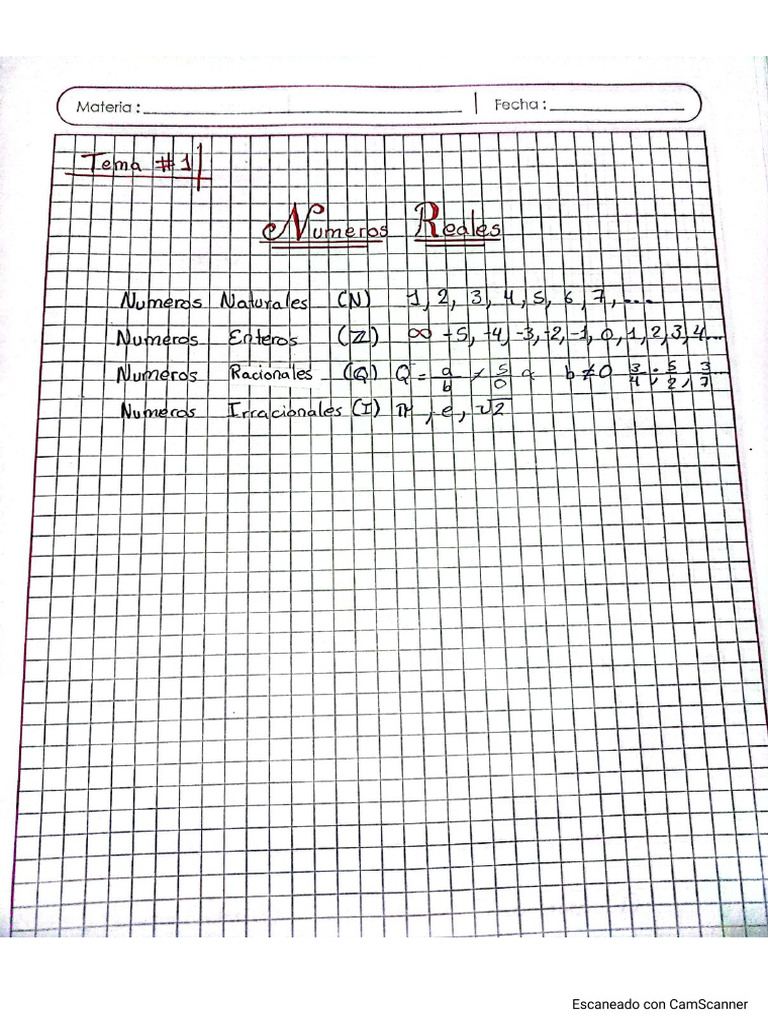 Materia : | Fecha :
Tema #1
Numeros Reales
Numeros Naturales (N) 1, 2, 3, 4, 5, 6, 7, ...
Numeros Enteros (Z) ∞ -5, -4, -3, -2, -1, 0, 1, 2, 3, 4...
Numeros Racionales (Q) Q = a/b ≠ 5/0 b ≠ 0 3/4, 5/2, 3/7
Numeros Irracionales (I) π, e, √2
Escaneado con CamScanner